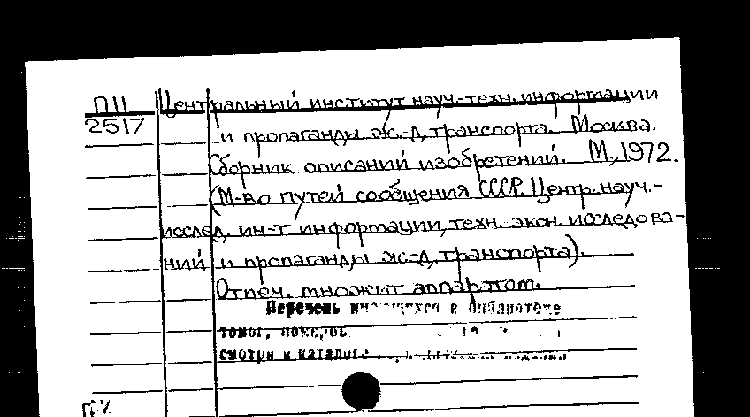 П11 Центральный институт науч.-техн. информации
2517 и пропаганды ж.-д. транспорта. Москва.
Сборник описаний изобретений. М., 1972.
(М-во путей сообщения СССР. Центр. науч.-
исслед. ин-т информации, техн. экон. исследова-
ний и пропаганды ж.-д. транспорта).
Отпеч. множит. аппаратом.
Перечень имеющихся в библиотеке
томов, номеров
смотри в каталоге